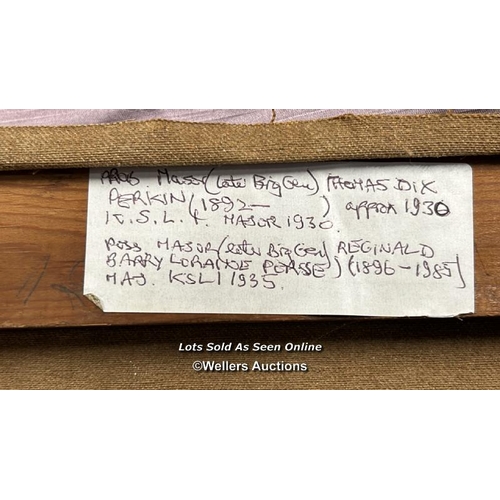 PROB MAJOR (later Brig Gen) THOMAS DIX
PERKIN (1892- ) approx 1930
K.S.L.I. MAJOR 1930.
POSS MAJOR (later Brig Gen) REGINALD
BARRY LORAINE PERSSE) (1896-1985)
MAJ. KSLI 1935.
Lots Sold As Seen Online
©Wellers Auctions